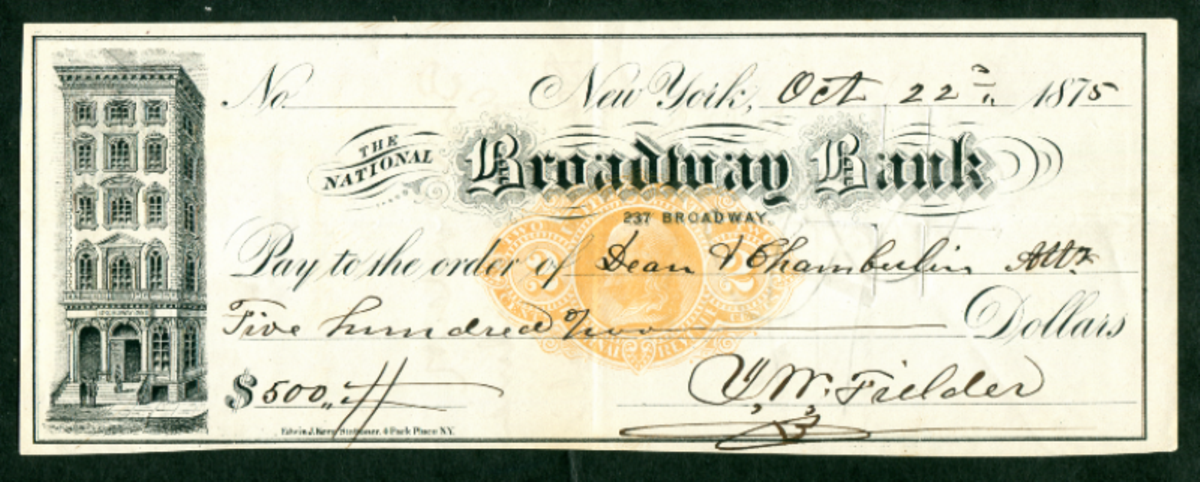 No. New York, Oct 22nd 1875
THE NATIONAL Broadway Bank
237 BROADWAY
Pay to the order of Dean & Chamberlin Attys
Five hundred Dollars
$500
W. Fielder
Edwin J. Stationer, 4 Park Place N.Y.
2 2